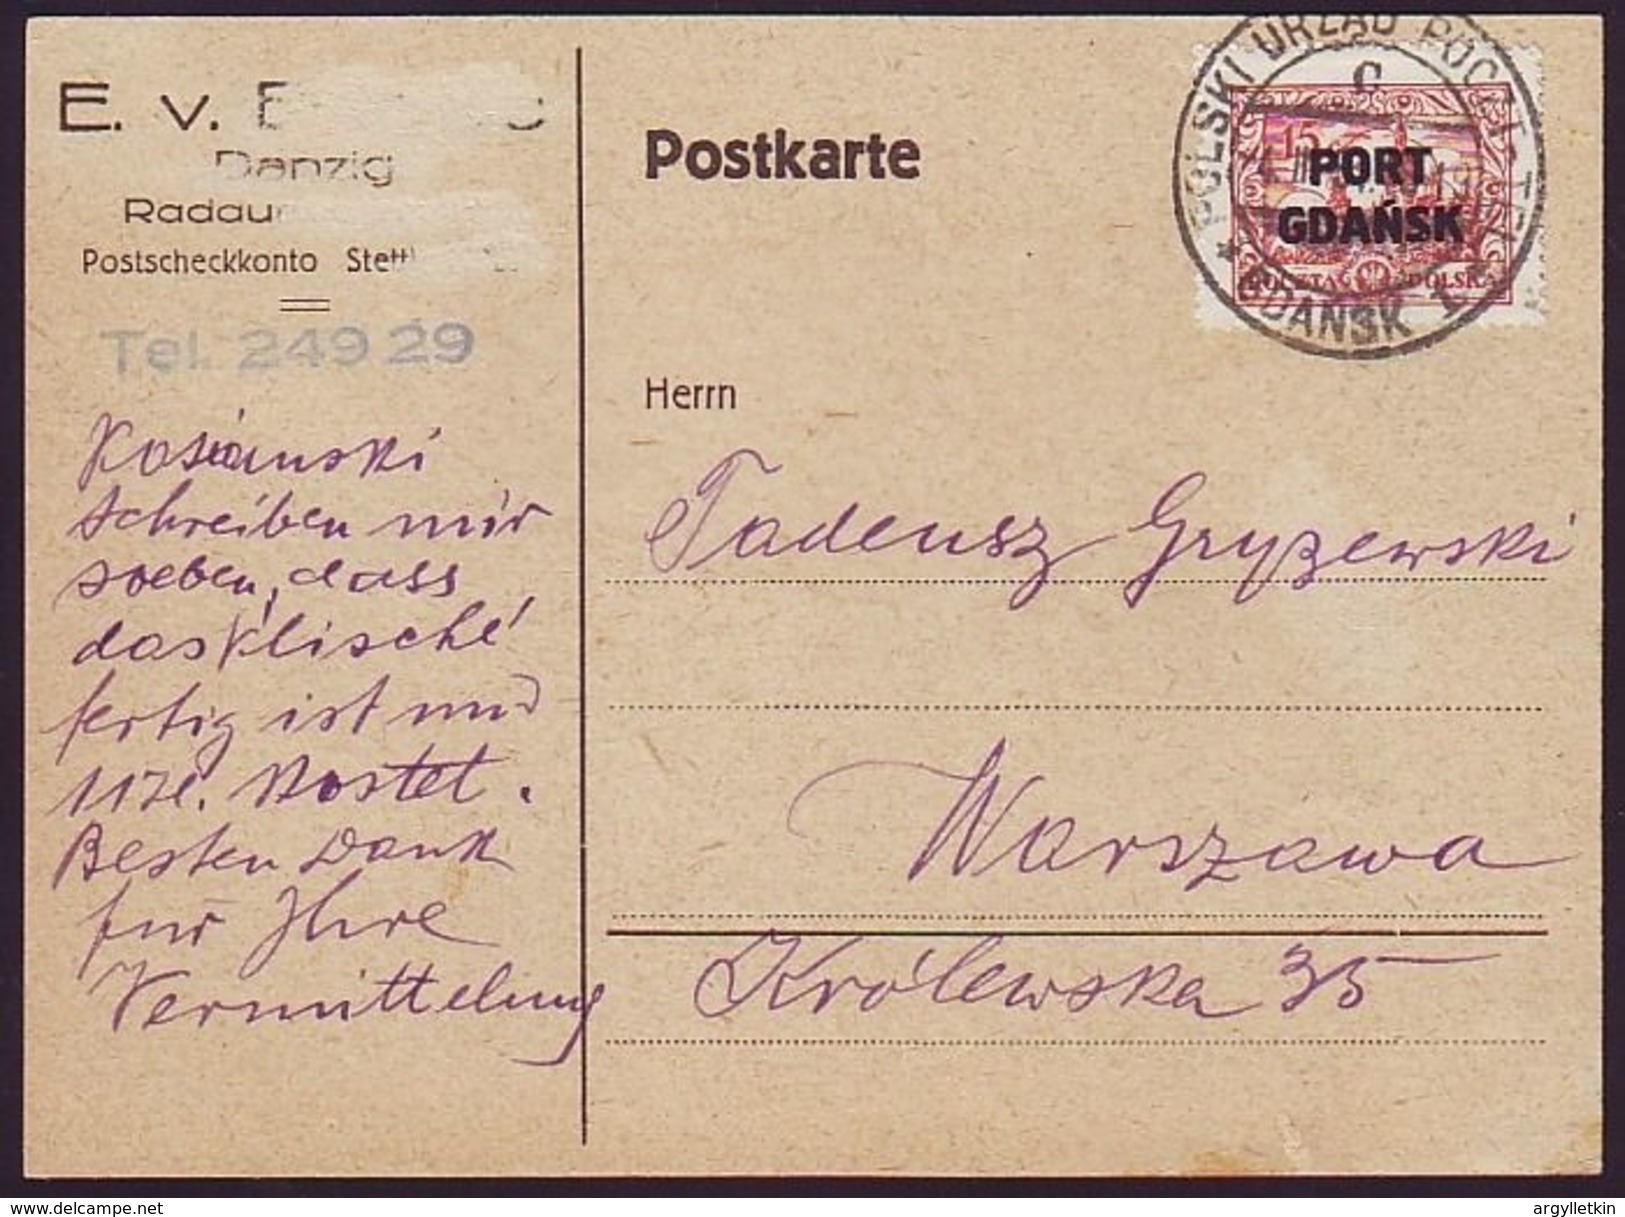 E. v.
Danzig
Radau
Postscheckkonto Stett
Tel. 249 29
Kosianski
schreiben mir
soeben, dass
das Klische
fertig ist und
kostet.
Besten Dank
für Ihre
Vermittelung
Postkarte
POLSKI URZĄD POCZT.-TEL.
C
GDAŃSK 1
15
PORT
GDAŃSK
POCZTA POLSKA
Herrn
Tadeusz Gryżewski
Warszawa
Królewska 35
argylletkin
www.delcampe.net